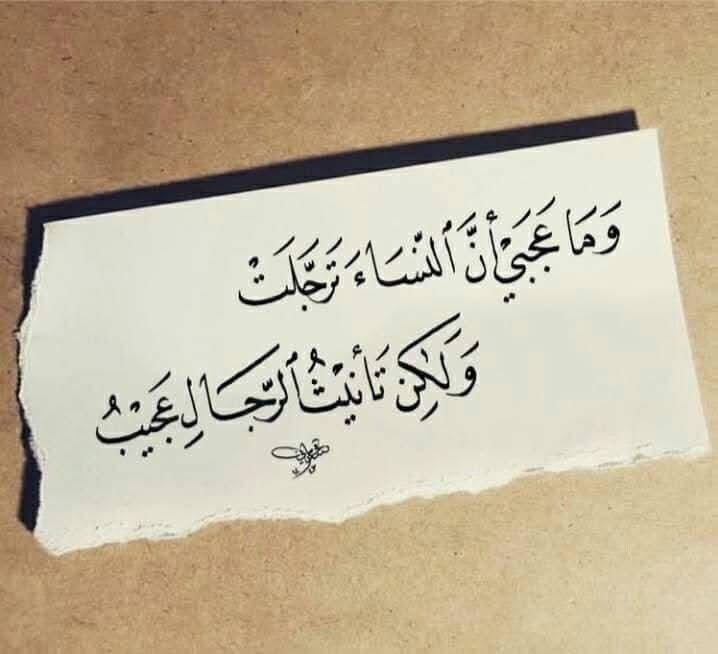 وَمَا عَجَبَيْ أنَّ ٱلنِّسَاءَ تَرَجَّلَتْ
وَلَٰكِن تَأنيْثُ ٱلرِّجَالِ عَجَيْبُ